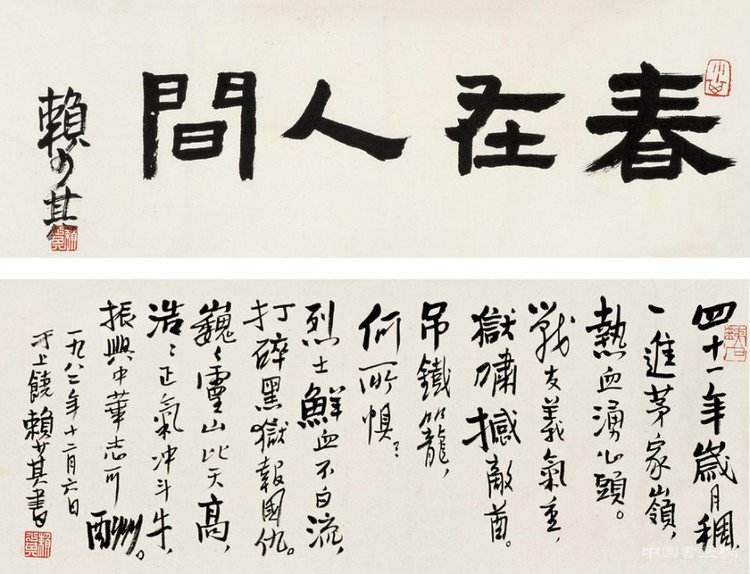 春在人間
賴少其
四十一年歲月稠，
一進茅家嶺，
熱血湧心頭。
戰友義氣重，
獄嘯撼敵酋。
吊鐵籠，
何所惧？
烈士鮮血不白流，
打碎黑獄報國仇。
巍〻靈山比天高，
浩〻正氣冲斗牛，
振興中華志可酬。
一九八二年十二月六日
于上饒賴少其書